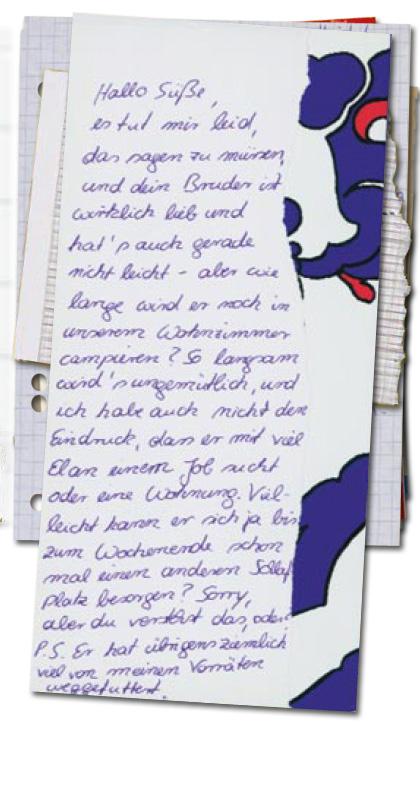 Hallo Süße,
es tut mir leid,
das sagen zu müssen,
und dein Bruder ist
wirklich lieb und
hat's auch gerade
nicht leicht - aber wie
lange wird er noch in
unserem Wohnzimmer
campieren? So langsam
wird's ungemütlich, und
ich habe auch nicht den
Eindruck, dass er mit viel
Elan einem Job sucht
oder eine Wohnung. Viel-
leicht kann er sich ja bis
zum Wochenende schon
mal einem anderen Schlaf
platz besorgen? Sorry,
aber du verstehst das, oder?
P.S. Er hat übrigens ziemlich
viel von meinen Vorräten
weggefuttert.